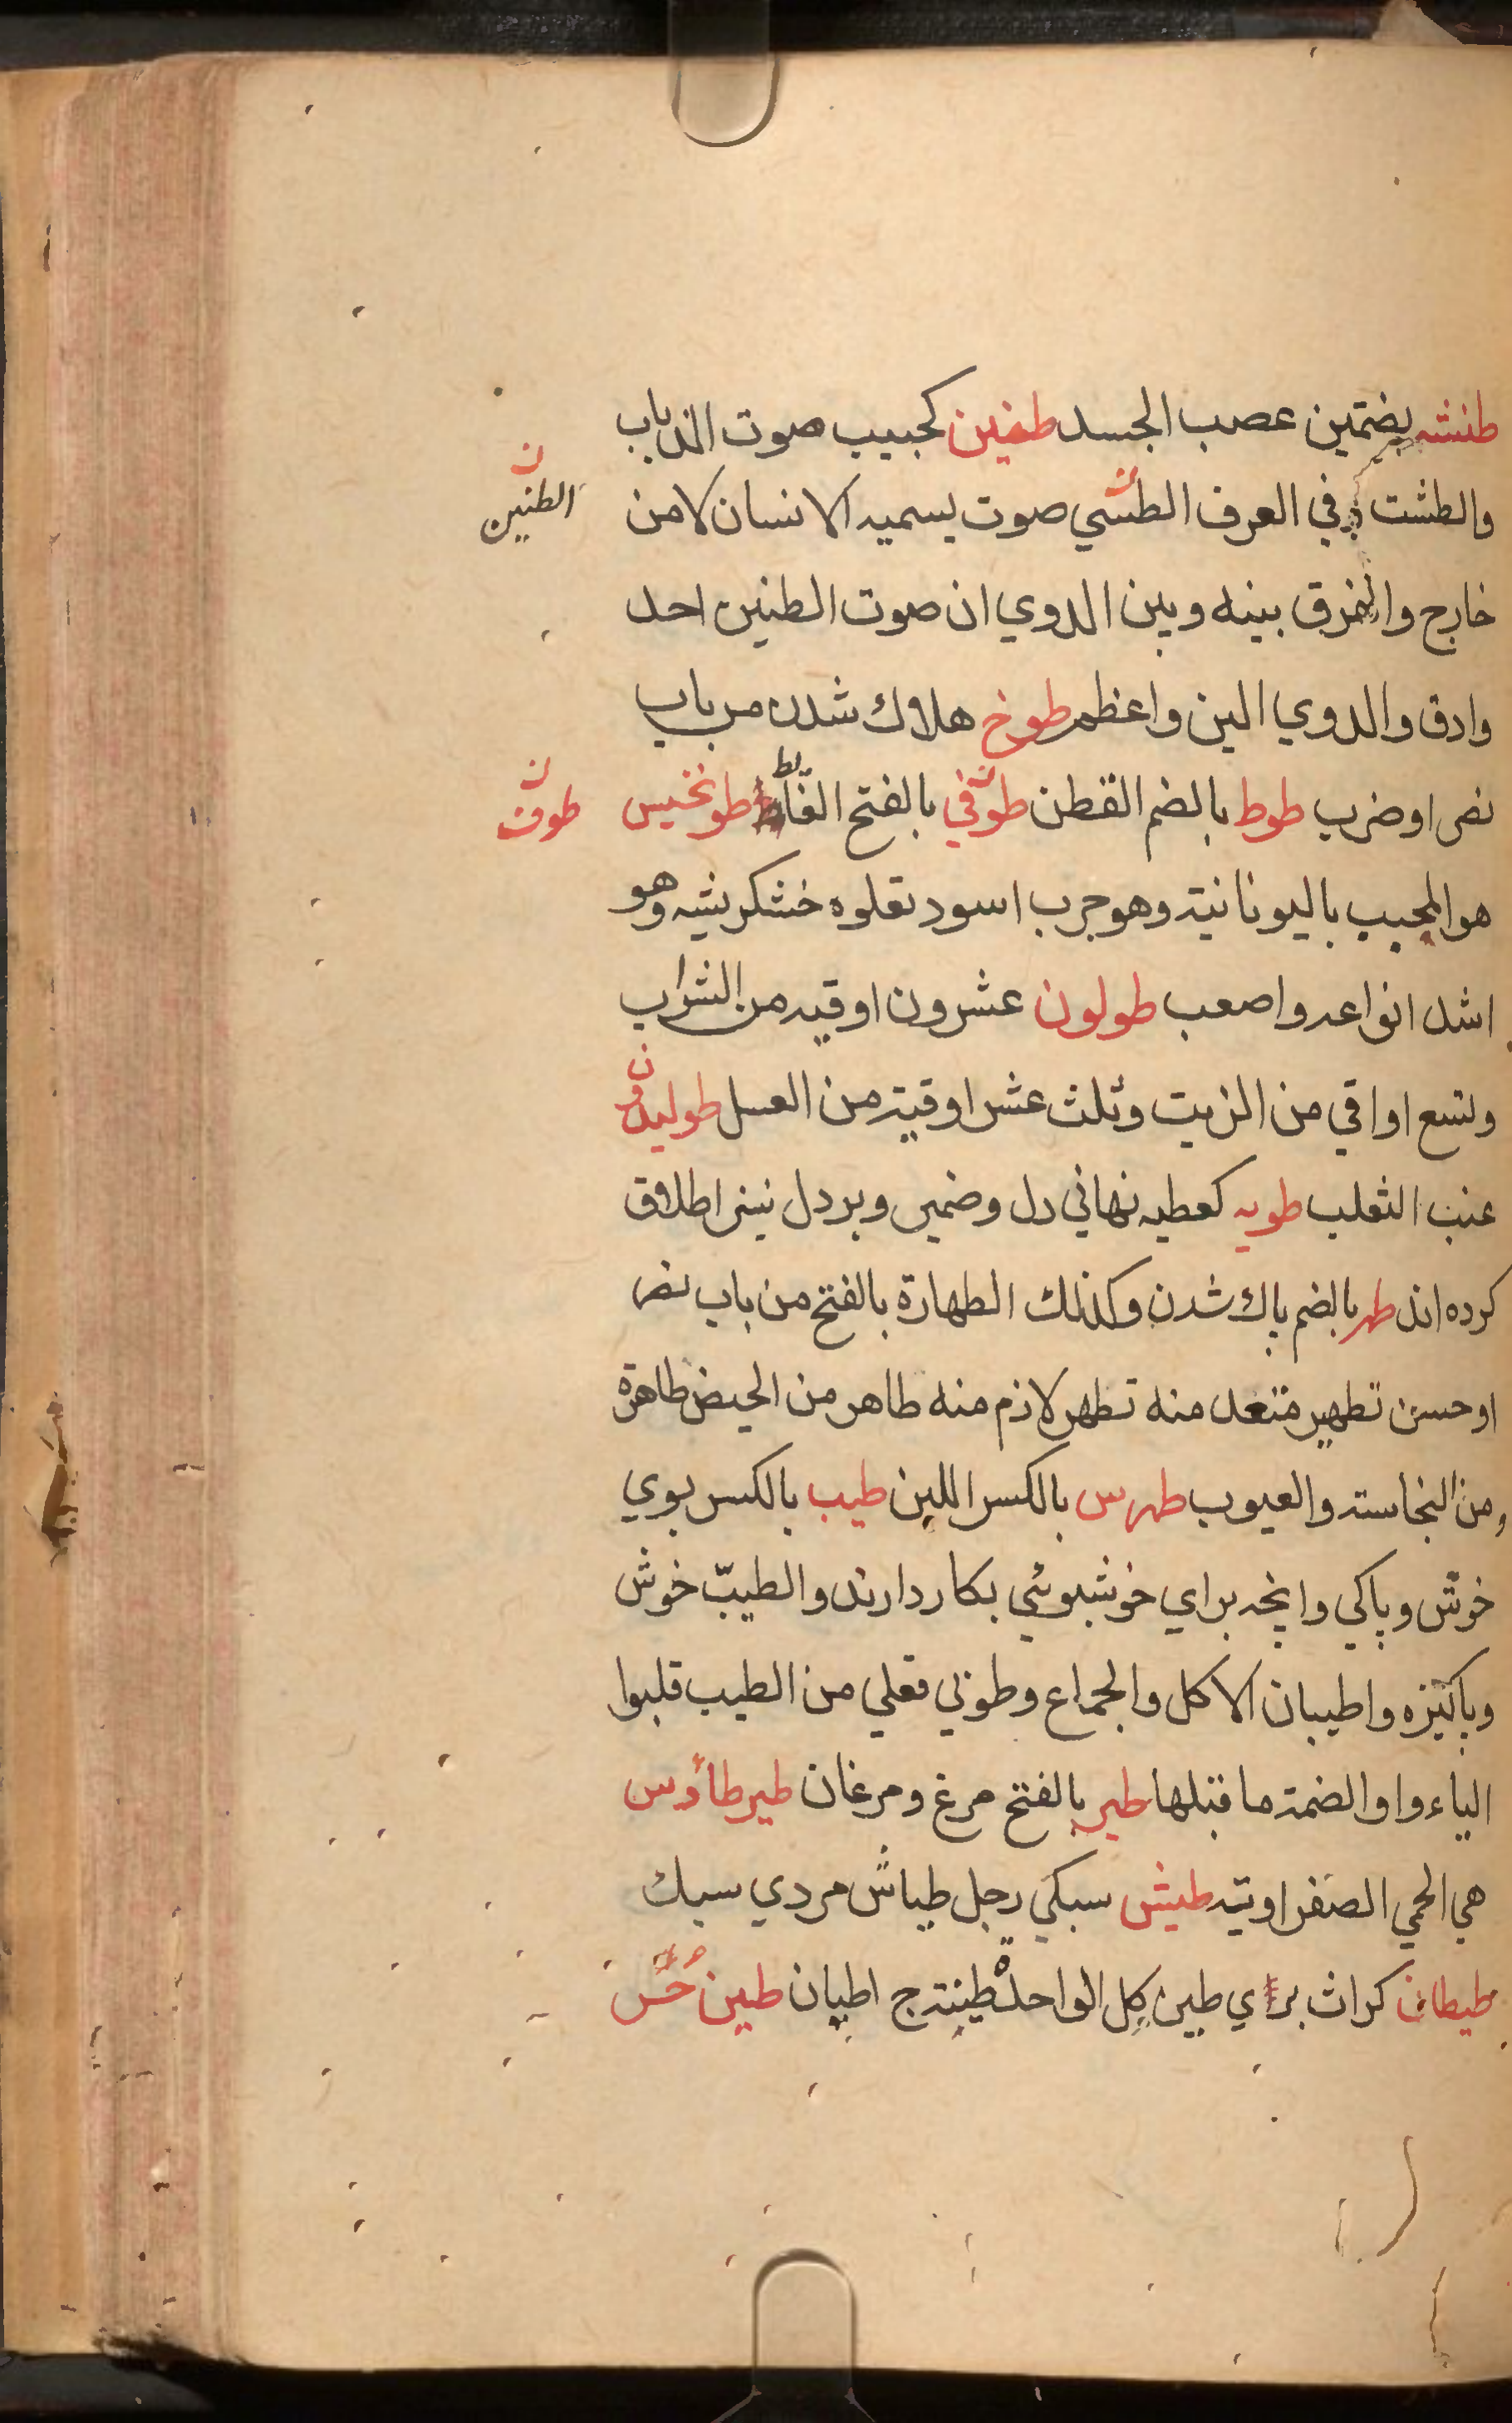 طنشه بضمتين عصب الجسد طنين كجبيب صوت الذباب
والطشت وفي العرف الطشي صوت يسميه الانسان لا من
الطنين
خارج والفرق بينه وبين الدوي ان صوت الطنين احد
وادق والدوي الين واعظم طوخ هلاك شدن من باب
نصر او ضرب طوط بالضم القطن طوفي بالفتح الغائط طونخيس
طوف
هو المجبب باليونانية وهو جرب اسود تعلوه خشكريشه وهو
اشد انواعه واصعب طولون عشرون اوقيه من الشراب
وتسع اواقي من الزيت وثلث عشر اوقية من العسل طوليدون
عنب الثعلب طويه كعطيه نهاني دل وضمير وبر دل نيز اطلاق
كرده اند طهر بالضم پاك شدن وكذلك الطهارة بالفتح من باب نصر
او حسن تطهير متعد منه تطهر لازم منه طاهر من الحيض طاهرة
ومن النجاسته والعيوب طهرس بالكسر اللين طيب بالكسر بوي
خوش وپاكي وانچه براي خوشبوئي بكار دارند والطيبّ خوش
وپاكيزه واطيبان الاكل والجماع وطوبي فعلي من الطيب قلبوا
الياء واوا لضمة ما قبلها طير بالفتح مرغ ومرغان طيرطأوس
هي الحمي الصفراويته طيش سبكي رجل طياش مردي سبك
طيطان كراث بري طين كل الواحدة طينة ج اطيان طين حر